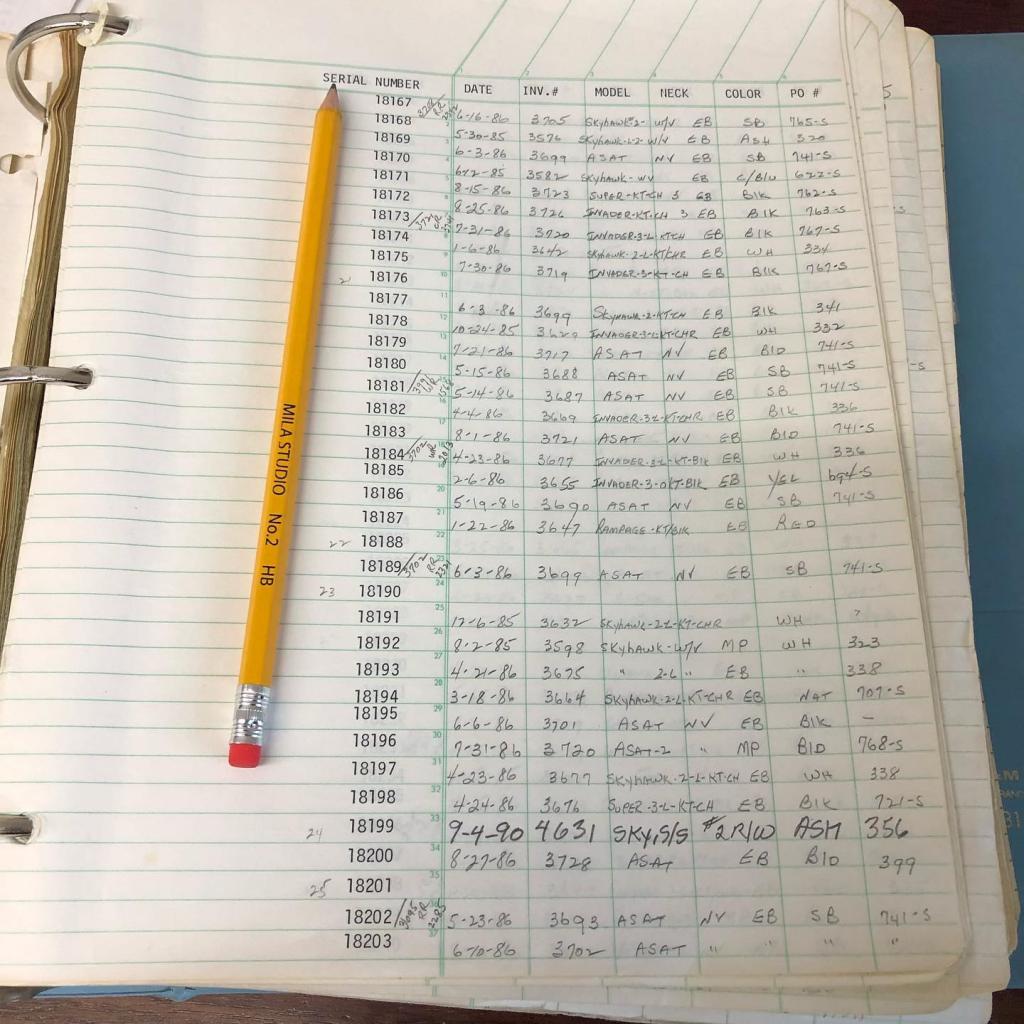 SERIAL NUMBER DATE INV.# MODEL NECK COLOR PO #
18167
18168 6-16-86 3705 SKYHAWK-2- W/V EB SB 765-S
18169 5-30-85 3576 SKYHAWK-L-2-W/V EB ASH 320
18170 6-3-86 3699 ASAT NV EB SB 741-S
18171 3582 SKYHAWK-WV EB C/BLU 622-S
18172 8-15-86 3723 SUPER-KT-CH 3 EB BlK 762-S
18173 8-25-86 3726 INVADER-KT-CH 3 EB BlK 763-S
18174 7-31-86 3720 INVADER-3-L KTCH EB BlK 767-S
18175 1-6-86 3642 SKYHAWK-2-L-KTCHR EB WH 334
18176 7-30-86 3719 INVADER-3-KT-CH EB BlK 767-S
18177
18178 6-3-86 3699 SKYHAWK-2-KT-CH EB BlK 341
18179 10-24-85 3620 INVADER-3-L-KT-CHR EB WH 332
18180 7-21-86 3717 ASAT NV EB BLD 741-S
18181 5-15-86 3688 ASAT NV EB SB 741-S
5-14-86 3687 ASAT NV EB SB 741-S
18182 4-4-86 3669 INVADER-3-L-KT-CHR EB BlK 336
18183 8-1-86 3721 ASAT NV EB BLD 741-S
18184 4-23-86 3677 INVADER-3-L-KT-BlK EB WH 336
18185 2-6-86 3655 INVADER-3-0KT-BlK EB YEL 694-S
18186 5-19-86 3690 ASAT NV EB SB 741-S
18187 1-22-86 3647 RAMPAGE-KT/BlK EB RED
22 18188
18189 6-3-86 3699 ASAT NV EB SB 741-S
23 18190
18191 12-6-85 3632 SKYHAWK-2-L-KT-CHR WH ?
18192 8-2-85 3598 SKYHAWK-W/V MP WH 323
18193 4-21-86 3675 " 2-L " EB " 338
18194 3-18-86 3664 SKYHAWK-2-L-KT-CHR EB NAT 707-S
18195 6-6-86 3701 ASAT NV EB BlK —
18196 7-31-86 3720 ASAT-2 " MP BLD 768-S
18197 4-23-86 3677 SKYHAWK-2-L-KT-CH EB WH 338
18198 4-24-86 3676 SUPER-3-L-KT-CH EB BlK 721-S
24 18199 9-4-90 4631 SKY/S/S #2R/W ASH 356
18200 8-27-86 3728 ASAT EB BLD 399
25 18201
18202 5-23-86 3693 ASAT NV EB SB 741-S
18203 6-10-86 3702 ASAT " " " "
MILA STUDIO No.2 HB